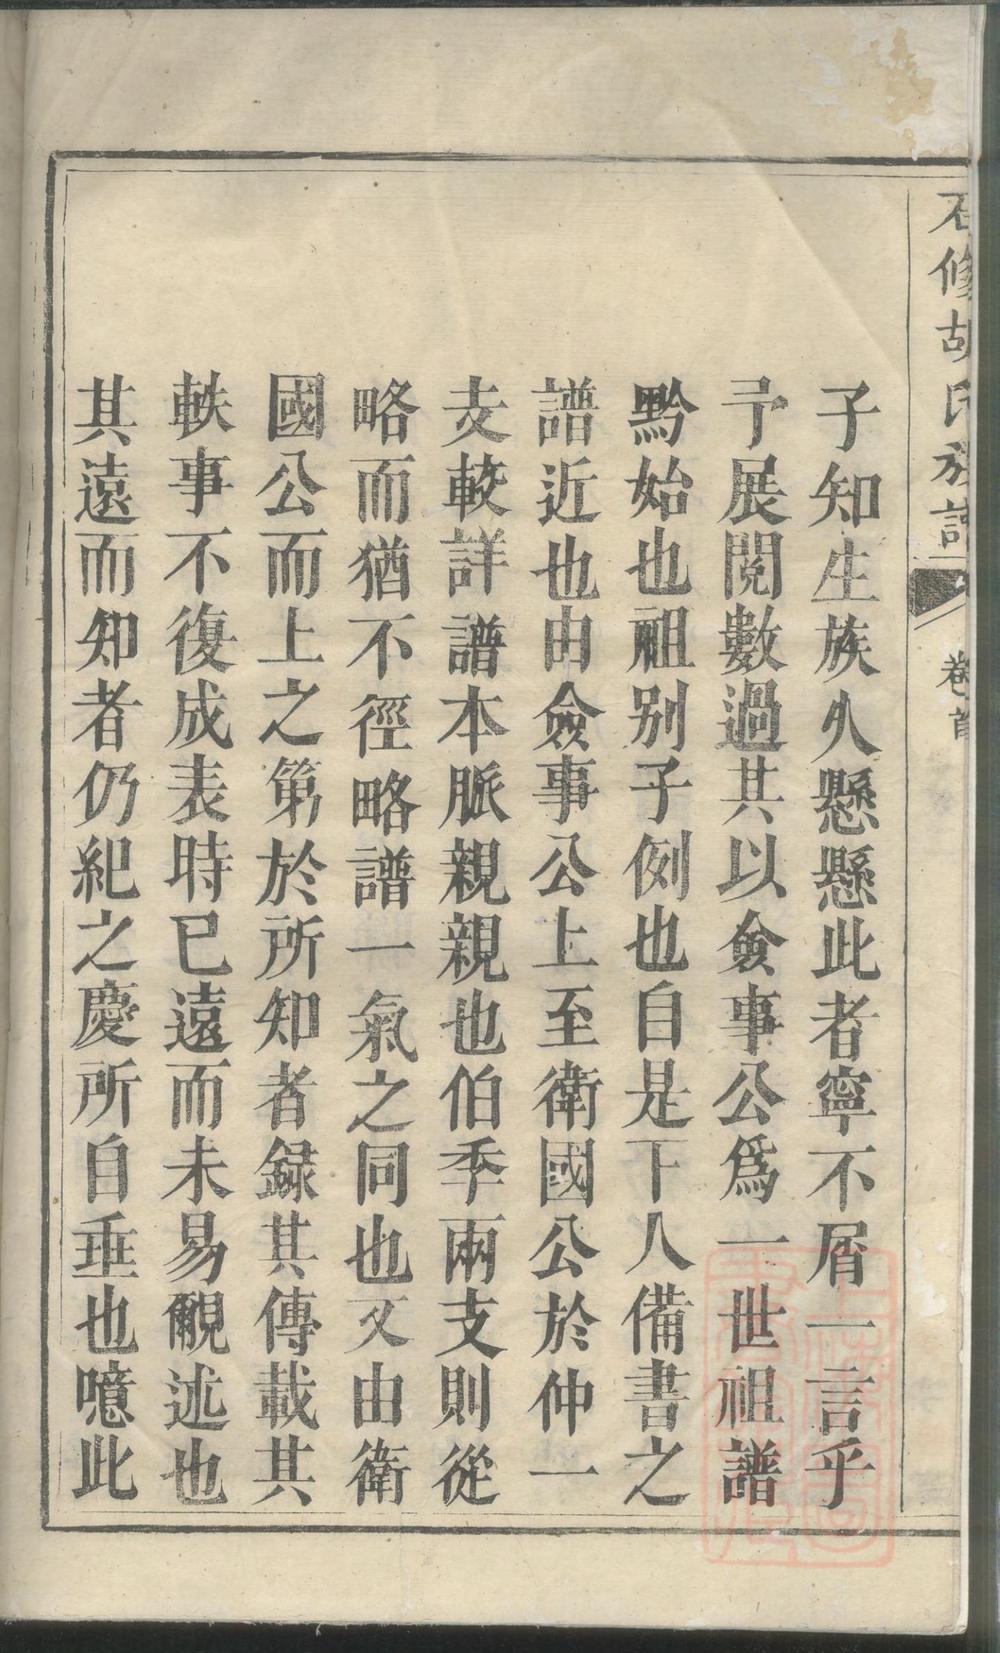 石修胡氏族譜
卷首
子知生族人懸懸此者寧不屑一言乎
予展閱數過其以僉事公爲一世祖譜
黔始也祖別子例也自是下人備書之
譜近也由僉事公上至衛國公於仲一
支較詳譜本脈親親也伯季兩支則從
略而猶不徑略譜一氣之同也又由衛
國公而上之第於所知者録其傳載其
軼事不復成表時已遠而未易覼述也
其遠而知者仍紀之慶所自垂也噫此